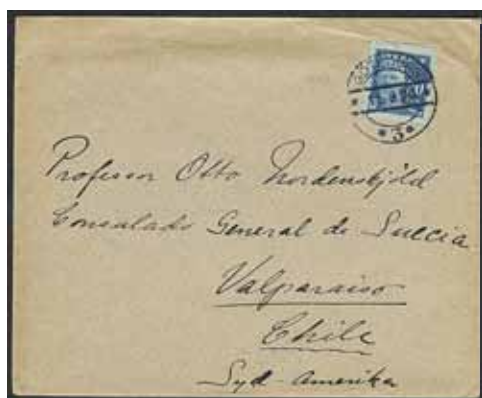 Professor Otto Nordenskjöld
Consulado General de Suecia
Valparaiso
Chile
Syd-Amerika